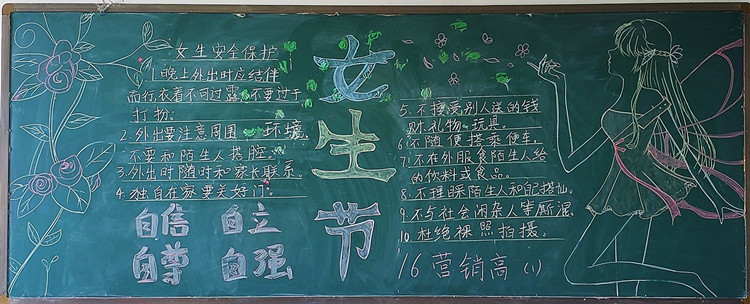 女生安全保护
1.晚上外出时应结伴
而行,衣着不可过露,不要过于
打扮.
2.外出要注意周围环境,
不要和陌生人搭腔.
3.外出时随时和家长联系.
4.独自在家要关好门.
自信 自立
自尊 自强
女生节
5.不接受别人送的钱
财.礼物.玩具.
6.不随便搭乘便车.
7.不在外服食陌生人给
的饮料或食品.
8.不理睬陌生人和配搭仙.
9.不与社会闲杂人等厮混
10.杜绝裸照拍摄.
16营销高(1)